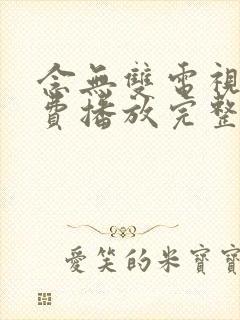 念無雙電視
費播放完整
愛笑的米寶寶